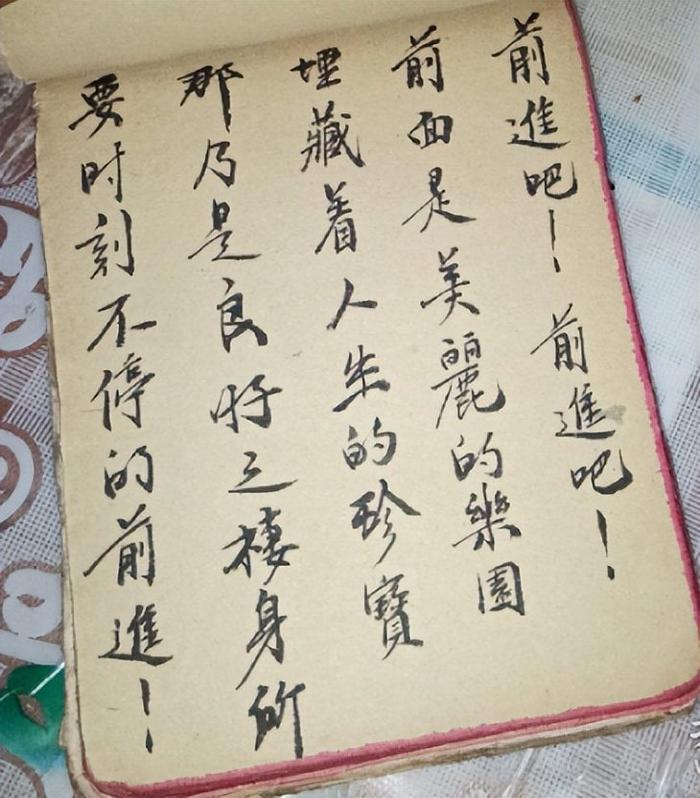 前進吧！前進吧！
前面是美麗的樂園
埋藏着人生的珍寶
那乃是良好之棲身所
要时刻不停的前進！